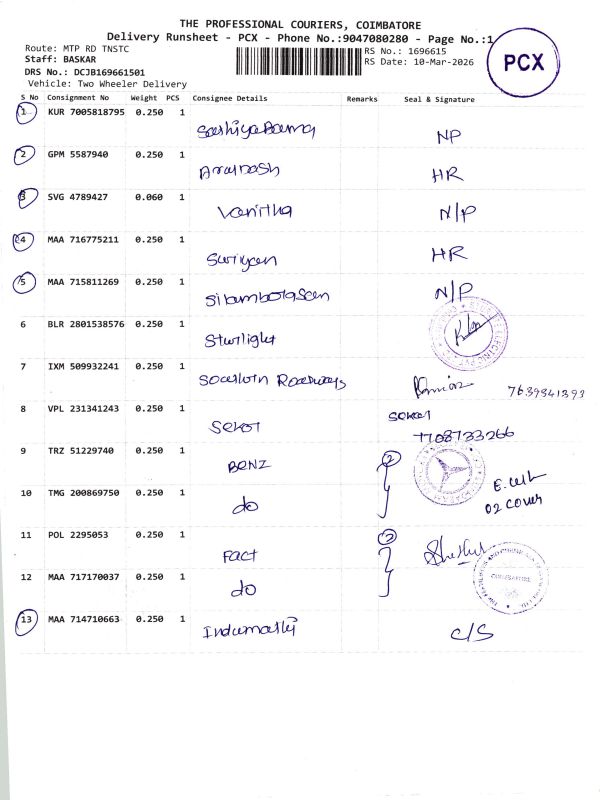 THE PROFESSIONAL COURIERS, COIMBATORE
Delivery Runsheet - PCX - Phone No.:9047080280 - Page No.:1
Route: MTP RD TNSTC
RS No.: 1696615
Staff: BASKAR
RS Date: 10-Mar-2026
DRS No.: DCJB169661501
Vehicle: Two Wheeler Delivery
PCX
S No Consignment No Weight PCS Consignee Details Remarks Seal & Signature
1 KUR 7005818795 0.250 1 NP
2 GPM 5587940 0.250 1 HR
3 SVG 4789427 0.060 1 Vanitha N/P
4 MAA 716775211 0.250 1 Suriyan HR
5 MAA 715811269 0.250 1 N/P
6 BLR 2801538576 0.250 1 Sturlight
7 IXM 509932241 0.250 1 Roadways 7639841393
8 VPL 231341243 0.250 1 Sekar Sekar
7708733266
9 TRZ 51229740 0.250 1 BENZ 2
10 TMG 200869750 0.250 1 do 02 cover
11 POL 2295053 0.250 1 Fact 2
12 MAA 717170037 0.250 1 do
COIMBATORE
13 MAA 714710663 0.250 1 Indumathi C/S